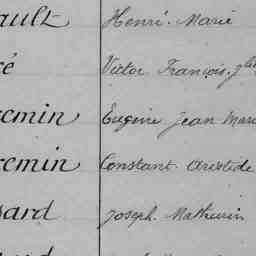 ault Henri Marie
é Victor François
rmin Eugène Jean Mari
rmin Constant Aristide
sard Joseph Mathurin